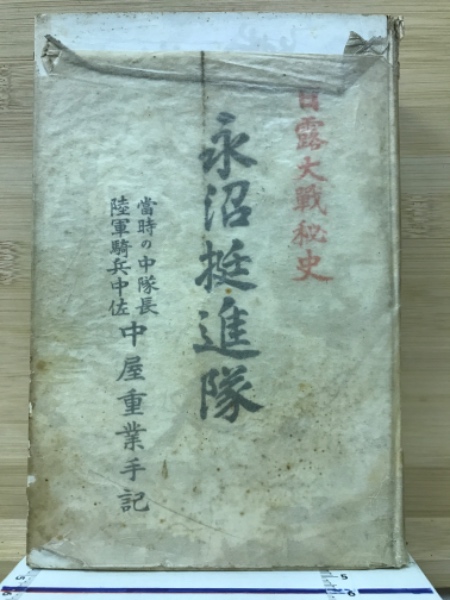 日露大戰秘史
永沼挺進隊
當時の中隊長
陸軍騎兵中佐
中屋重業手記
5
6